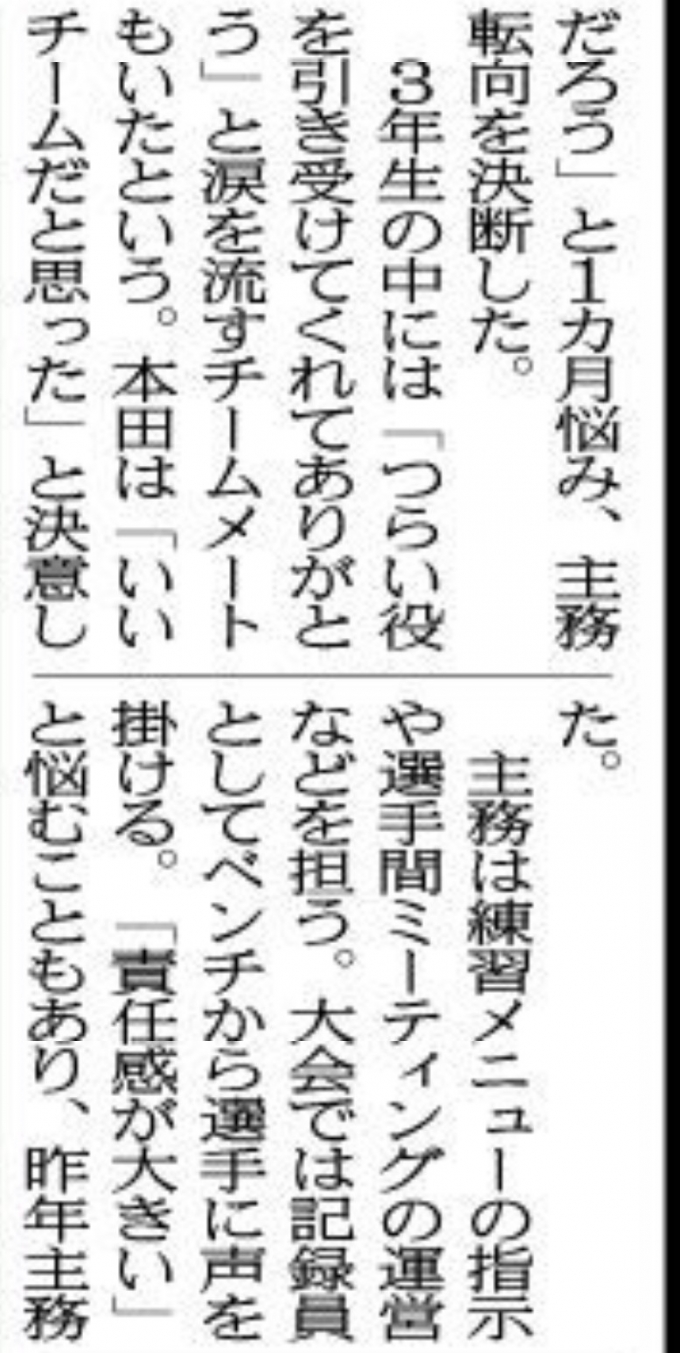 だろう」と1カ月悩み、主務
転向を決断した。
　3年生の中には「つらい役
を引き受けてくれてありがと
う」と涙を流すチームメート
もいたという。本田は「いい
チームだと思った」と決意し
た。
　主務は練習メニューの指示
や選手間ミーティングの運営
などを担う。大会では記録員
としてベンチから選手に声を
掛ける。「責任感が大きい」
と悩むこともあり、昨年主務